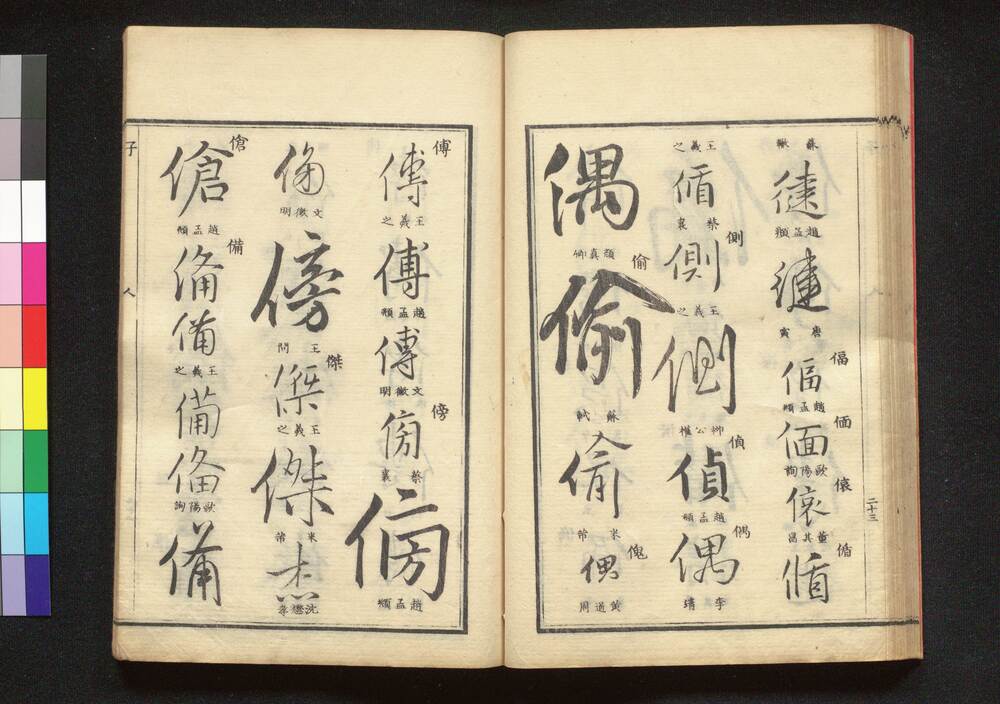 蘇軾
健
趙孟頫
健
唐寅
偪
偪
趙孟頫
偭
偭
歐陽詢
偯
偯
董其昌
偱
偱
二十三
王羲之
偱
蔡襄
側
側
王羲之
側
柳公權
偵
偵
趙孟頫
偶
偶
李靖
偶
顏真卿
偷
偷
蘇軾
偷
米芾
傀
傀
黃道周
傅
傅
王羲之
傅
趙孟頫
傅
文徵明
傍
傍
蔡襄
傍
趙孟頫
文徵明
傍
王問
傑
傑
王羲之
傑
米芾
杰
傖
傖
趙孟頫
備
備
備
王羲之
備
備
歐陽詢
備
子
人